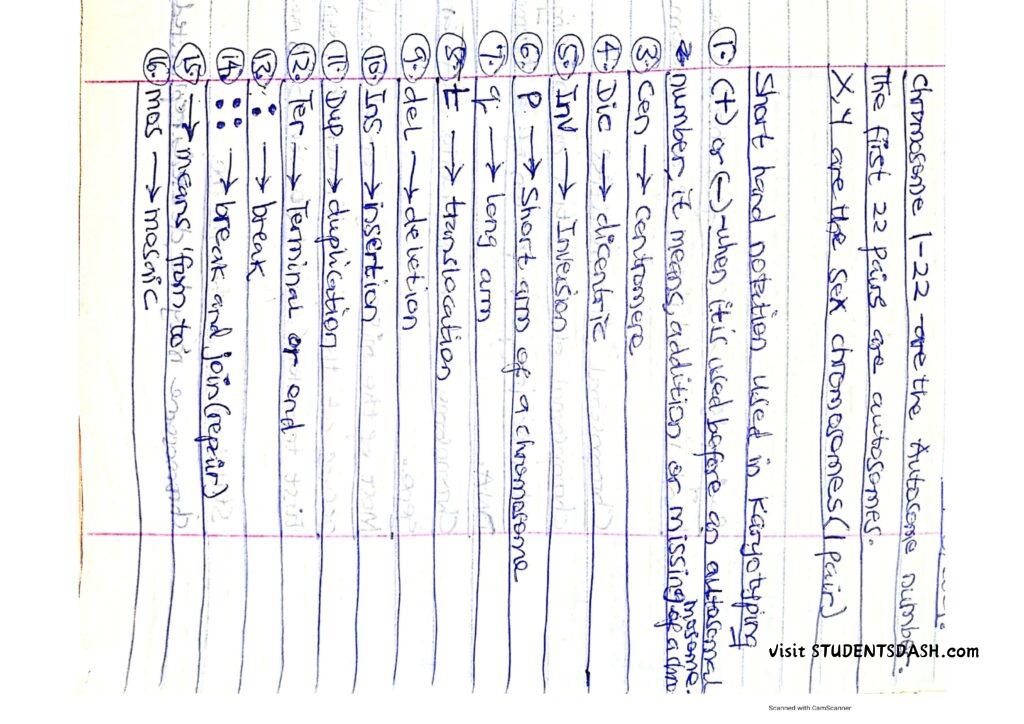 Chromosome 1-22 are the Autosome number.
The first 22 pairs are autosomes.
X, Y are the sex chromosomes (1 pair)
Short hand notation used in Karyotyping
① (+) or (-) - when it is used before an autosomal
number, it means, addition or missing of a chromosome.
③ Cen → Centromere
④ Dic → dicentric
⑤ Inv → Inversion
⑥ P → Short arm of a chromosome
⑦ q → long arm
⑧ t → translocation
⑨ del → deletion
⑩ Ins → insertion
⑪ Dup → duplication
⑫ Ter → Terminal or end
⑬ : → break
⑭ :: → break and join (repair)
⑮ → means 'from to'
⑯ mos → mosaic
visit STUDENTSDASH.com
Scanned with CamScanner